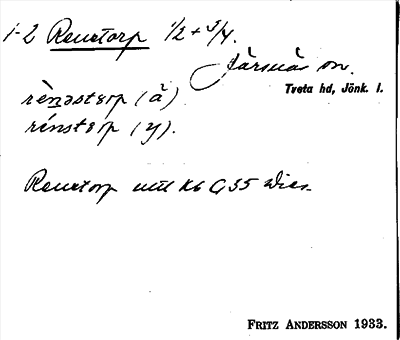 1-2 Renstorp 1/2 + 3/4.
Järsnäs sn.
Tveta hd, Jönk. l.
rènəstərp (ä)
rénstərp (y).
Renstorp
FRITZ ANDERSSON 1933.